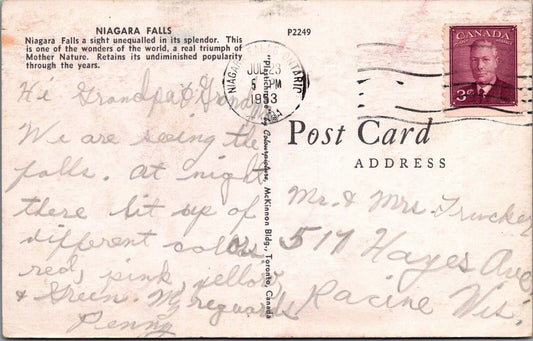 NIAGARA FALLS
Niagara Falls a sight unequalled in its splendor. This
is one of the wonders of the world, a real triumph of
Mother Nature. Retains its undiminished popularity
through the years.
P2249
NIAGARA ONTARIO
JUL 23
5 PM
1953
CANADA
3
Hi Grandpa &
We are seeing the
falls. At night
there lit up of
different colors
red, pink, yellow,
& Green. My regards
Penny
"Plastichrome" by Colourpicture, McKinnon Bldg., Toronto, Canada
Post Card
ADDRESS
Mr. & Mrs. Trucker
517 Hayes Ave
Racine Wis.